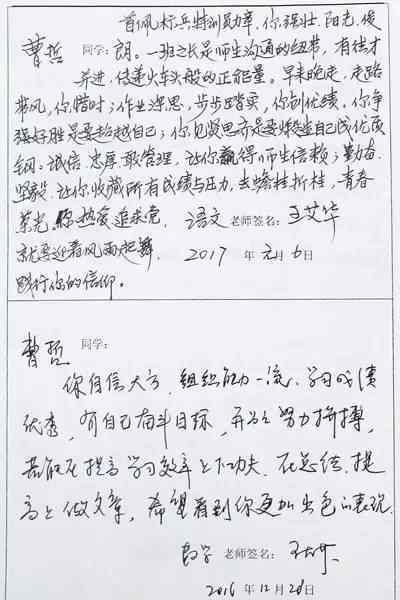 首佩标兵特训勋章,你强壮、阳光、俊
曹哲 同学:朗。一班之长是师生沟通的纽带,有德才
并进,传递火车头般的正能量。早来晚走,走路
带风,你惜时;作业深思,步步踏实,你创优绩。你争
强好胜是要超越自己;你见贤思齐是要煅造自己成优质
钢。诚信、忠厚敢管理,让你赢得师生信赖;勤奋、
坚毅,让你收藏所有成绩与压力,去蟾桂折桂,青春
荣光。你热爱追求党, 语文 老师签名:王艾华
就要迎着风雨起舞, 2017 年 元月 6 日
践行你的信仰。
曹哲 同学:
你自信大方,组织能力一流、学习成绩
优秀,有自己奋斗目标,并为之努力拼搏,
若能在提高学习效率上下功夫,在总结、提
高上做文章,希望看到你更加出色的表现。
数学 老师签名:
2016 年 12 月 28 日